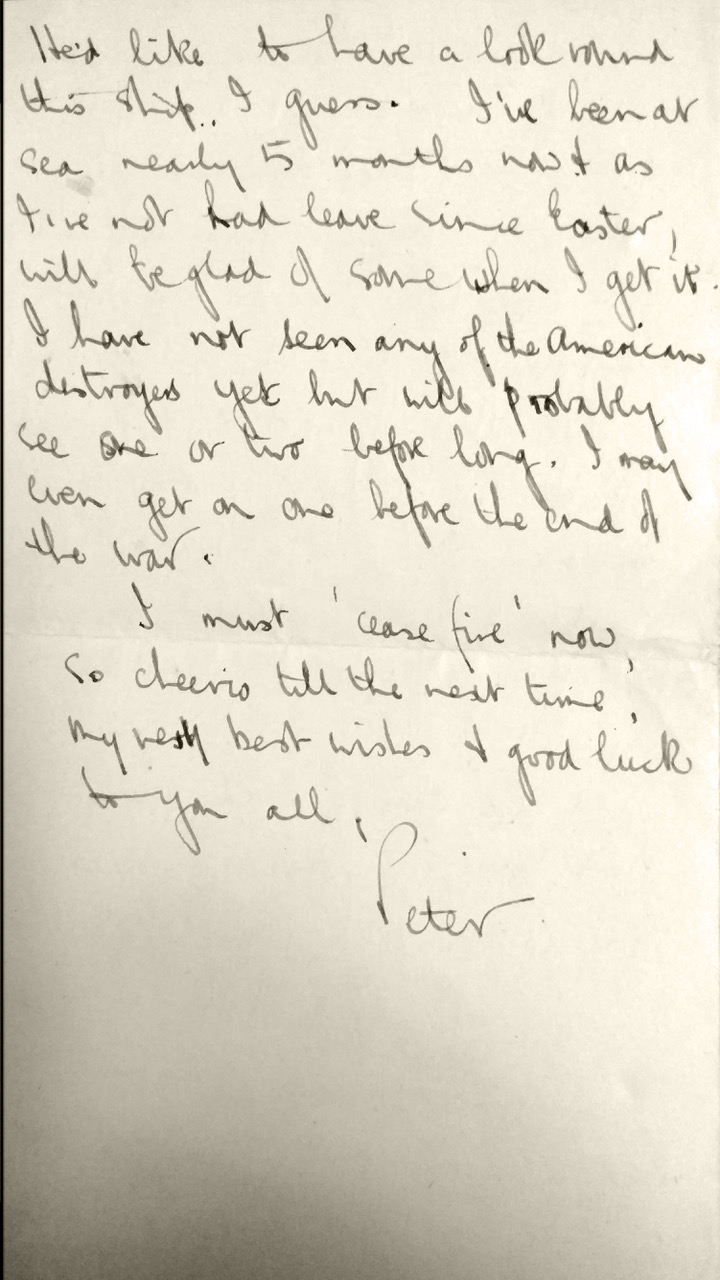 He'd like to have a look round
this ship, I guess. I've been at
sea nearly 5 months now & as
I've not had leave since Easter,
will be glad of some when I get it.
I have not seen any of the American
destroyers yet but will probably
see one or two before long. I may
even get on one before the end of
the war.
I must 'cease fire' now,
so cheerio till the next time,
my very best wishes & good luck
to you all,
Peter